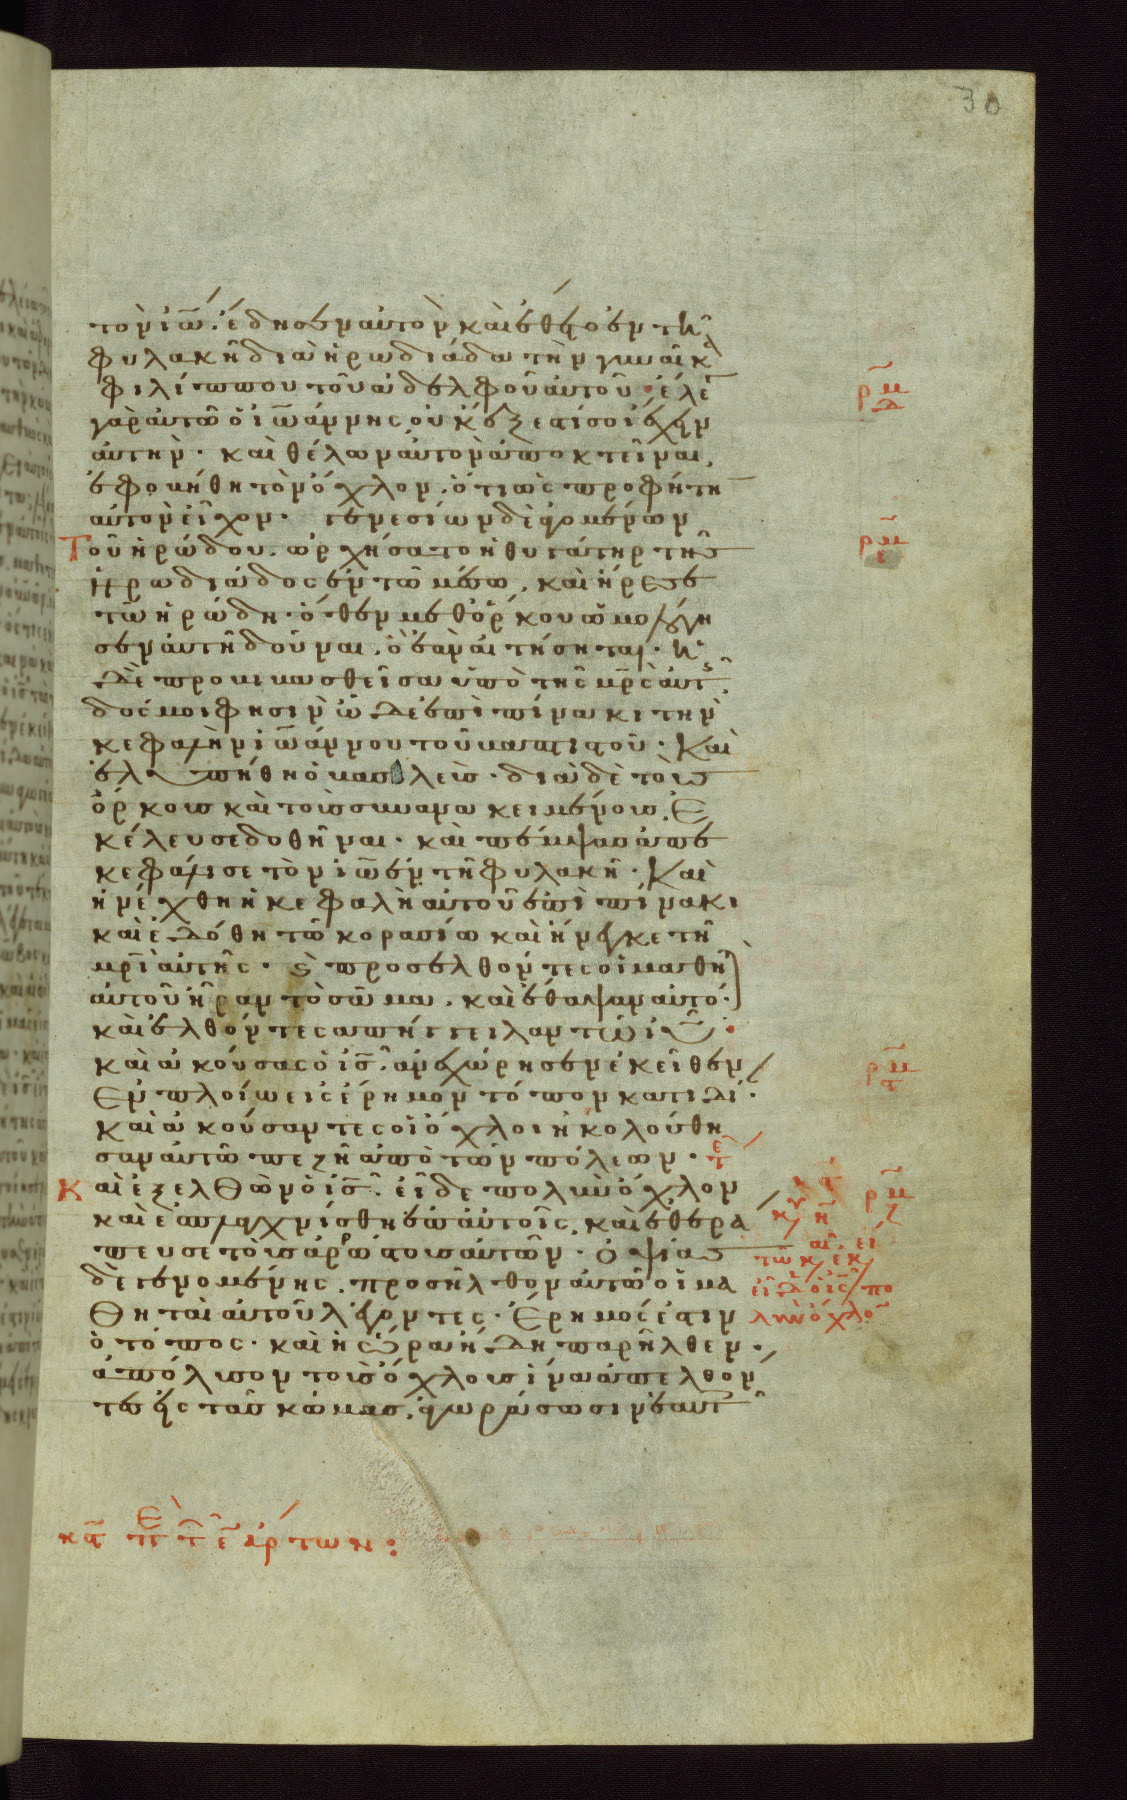 30
τὸν ἰω̅. ἔδησεν αὐτὸν καὶ ἔθετο ἐν τῆ
φυλακῆ διὰ ἡρωδιάδα τὴν γυναῖκα
φιλίππου τοῦ ἀδελφοῦ αὐτοῦ· ἔλε
γὰρ αὐτῶ ὁ ἰωάννης οὐκ ἔξεστί σοι ἔχειν
αὐτήν· καὶ θέλων αὐτὸν ἀποκτεῖναι,
ἐφοβήθη τὸν ὄχλον. ὅτι ὡς προφήτη
αὐτὸν εἶχον· γενεσίων δὲ ἀγομένων
Τοῦ ἡρώδου. ὠρχήσατο ἡ θυγάτηρ τῆς
ἡρωδιάδος ἐν τῶ μέσω, καὶ ἤρεσε
τῶ ἡρώδη· ὅθεν μεθ' ὅρκου ὡμολόγη
σεν αὐτῆ δοῦναι. ὃ ἐὰν αἰτήσηται· ἡ
δὲ προβιβασθεῖσα ὑπὸ τῆς μρ̅ς αὐτ
δός μοι φησὶν ὧδε ἐπὶ πίνακι τὴν
κεφαλὴν ἰωάννου τοῦ βαπτιστοῦ· Καὶ
ἐλυπήθη ὁ βασιλεὺς· διὰ δὲ τοὺς
ὅρκους καὶ τοὺς συνανακειμένους, Ἐ
κέλευσε δοθῆναι· καὶ πέμψας ἀπε
κεφάλισε τὸν ἰω̅ ἐν τῆ φυλακῆ· Καὶ
ἠνέχθη ἡ κεφαλὴ αὐτοῦ ἐπὶ πίνακι
καὶ ἐδόθη τῶ κορασίω καὶ ἤνεγκε τῆ
μρ̅ὶ αὐτῆς· καὶ προσελθόντες οἱ μαθη
αὐτοῦ ἦραν τὸ σῶμα, καὶ ἔθαψαν αὐτό·
καὶ ἐλθόντες ἀπήγγειλαν τῶ ἰῦ·
καὶ ἀκούσας ὁ ις̅. ἀνεχώρησεν ἐκεῖθεν
Ἐν πλοίω εἰς ἔρημον τόπον κατ ιδί·
Καὶ ἀκούσαντες οἱ ὄχλοι ἠκολούθη
σαν αὐτῶ πεζῆ ἀπὸ τῶν πόλεων·
Καὶ ἐξελθὼν ὁ ις̅. εἶδε πολὺν ὄχλον
καὶ ἐσπλαγχνίσθη ἐπ αὐτοῖς, καὶ ἐθερά
πευσε τοὺς ἀρρώστους αὐτῶν· Ὀψίας
δὲ γενομένης. προσῆλθον αὐτῶ οἱ μα
θηταὶ αὐτοῦ λέγοντες· Ἔρημός ἐστιν
ὁ τόπος· καὶ ἡ ὥρα ἤδη παρῆλθεν·
ἀπόλυσον τοὺς ὄχλους ἵνα ἀπελθόν
τες εἰς τὰς κώμας, ἀγοράσωσιν ἑαυτ
ρμ̅
δ
ρμ̅
ε
ρμ̅
ϛ
ρμ̅
ζ
τῶ κ, ἐκ,
εἶδ ὁ ις̅ πο
λὺν ὄχλο
κϛ̅ π τ ε̅ ἄρτων: